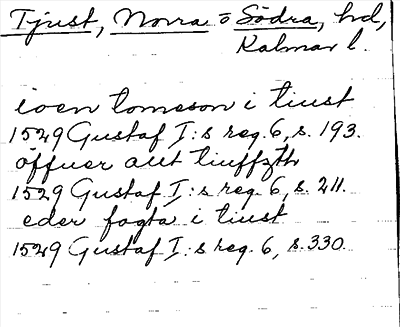 Tjust, Norra o Södra, hd,
Kalmar l.
ioen tomeson i tiust
1529 Gustaf I:s reg. 6, s. 193.
öffuer alt tiuffzth
1529 Gustaf I:s reg. 6, s. 211.
eder fogta i tiust
1529 Gustaf I:s reg. 6, s. 330.